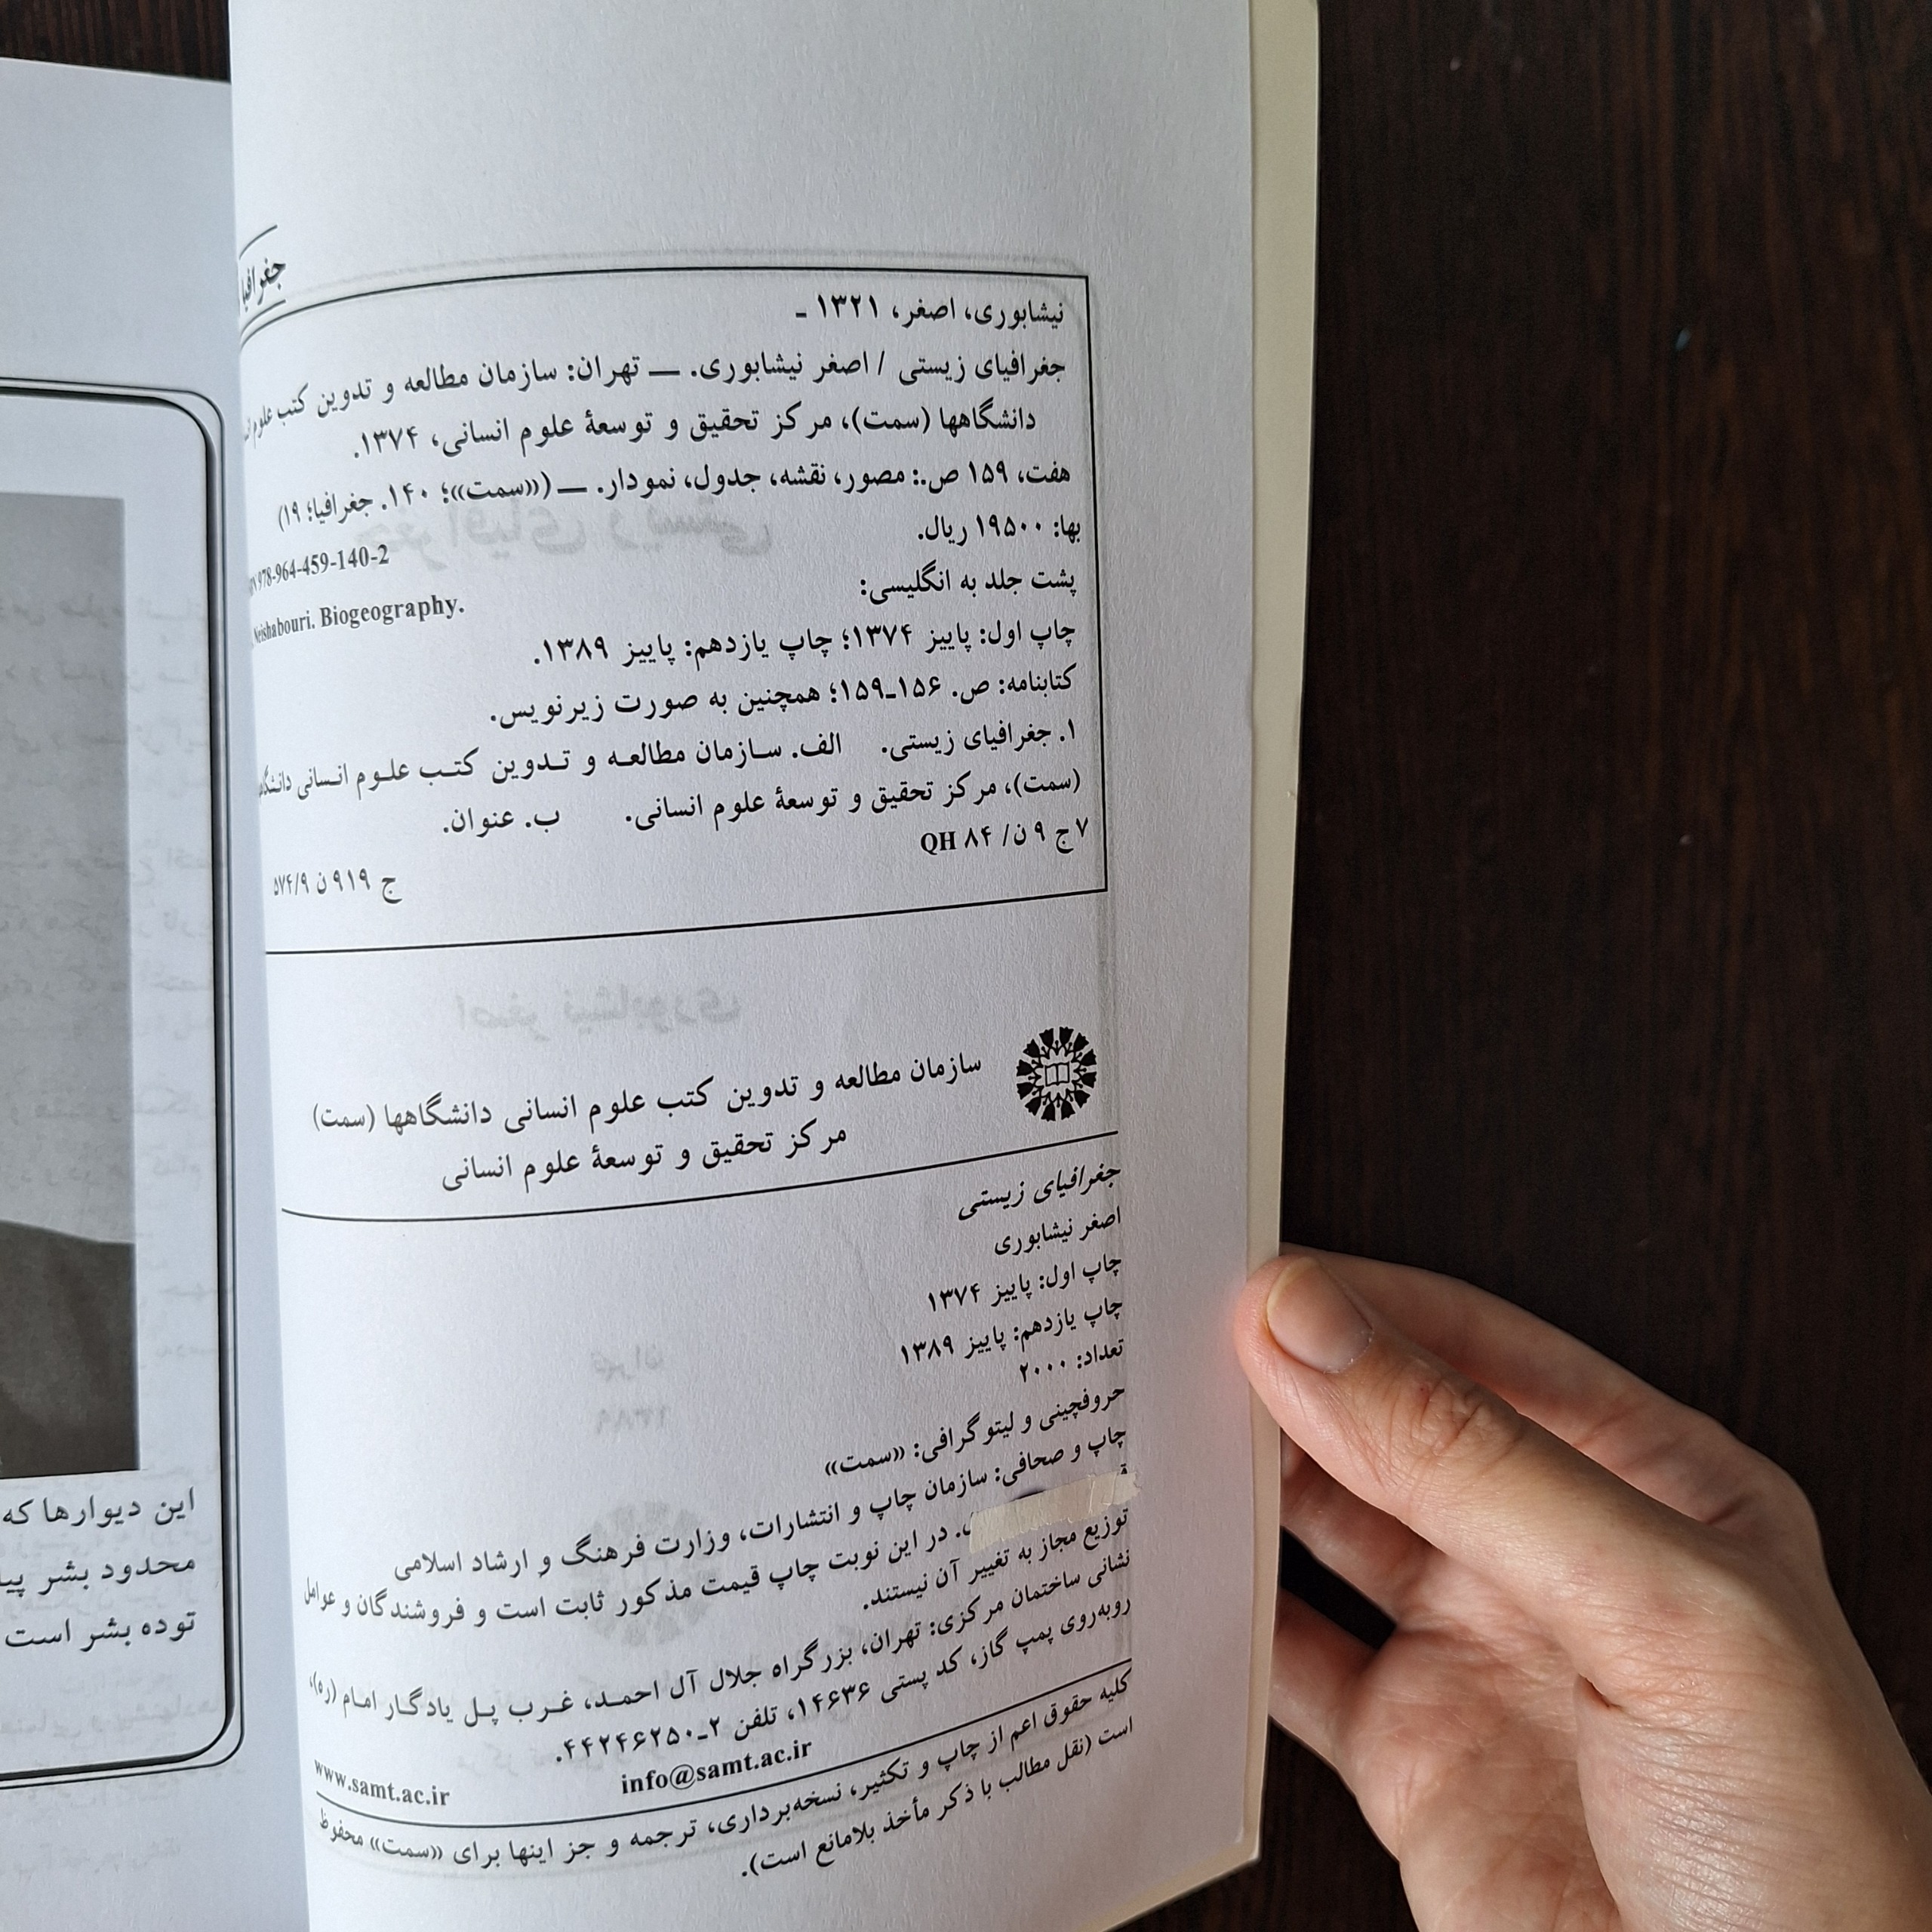 جغرافیا
نیشابوری، اصغر، ۱۳۲۱ -
جغرافیای زیستی / اصغر نیشابوری. — تهران: سازمان مطالعه و تدوین کتب علوم
دانشگاهها (سمت)، مرکز تحقیق و توسعهٔ علوم انسانی، ۱۳۷۴.
هفت، ۱۵۹ ص.: مصور، نقشه، جدول، نمودار. — («سمت»؛ ۱۴۰. جغرافیا؛ ۱۹)
بها: ۱۹۵۰۰ ریال.
978-964-459-140-2
پشت جلد به انگلیسی:
Neishabouri. Biogeography.
چاپ اول: پاییز ۱۳۷۴؛ چاپ یازدهم: پاییز ۱۳۸۹.
کتابنامه: ص. ۱۵۶-۱۵۹؛ همچنین به صورت زیرنویس.
۱. جغرافیای زیستی. الف. سازمان مطالعه و تدوین کتب علوم انسانی
(سمت)، مرکز تحقیق و توسعهٔ علوم انسانی. ب. عنوان.
۷ج ۹ن/ ۸۴ QH
ج ۹۱۹ ن ۵۷۴/۹
سازمان مطالعه و تدوین کتب علوم انسانی دانشگاهها (سمت)
مرکز تحقیق و توسعهٔ علوم انسانی
جغرافیای زیستی
اصغر نیشابوری
چاپ اول: پاییز ۱۳۷۴
چاپ یازدهم: پاییز ۱۳۸۹
تعداد: ۲۰۰۰
حروفچینی و لیتوگرافی: «سمت»
چاپ و صحافی: سازمان چاپ و انتشارات، وزارت فرهنگ و ارشاد اسلامی
در این نوبت چاپ قیمت مذکور ثابت است و فروشندگان و عوامل
توزیع مجاز به تغییر آن نیستند.
نشانی ساختمان مرکزی: تهران، بزرگراه جلال آل احمد، غرب پل یادگار امام (ره)،
روبه‌روی پمپ گاز، کد پستی ۱۴۶۳۶، تلفن ۲-۴۴۲۴۶۲۵۰.
www.samt.ac.ir info@samt.ac.ir
کلیه حقوق اعم از چاپ و تکثیر، نسخه‌برداری، ترجمه و جز اینها برای «سمت» محفوظ
است (نقل مطالب با ذکر مأخذ بلامانع است).
این دیوارها که
محدود بشر
توده بشر است